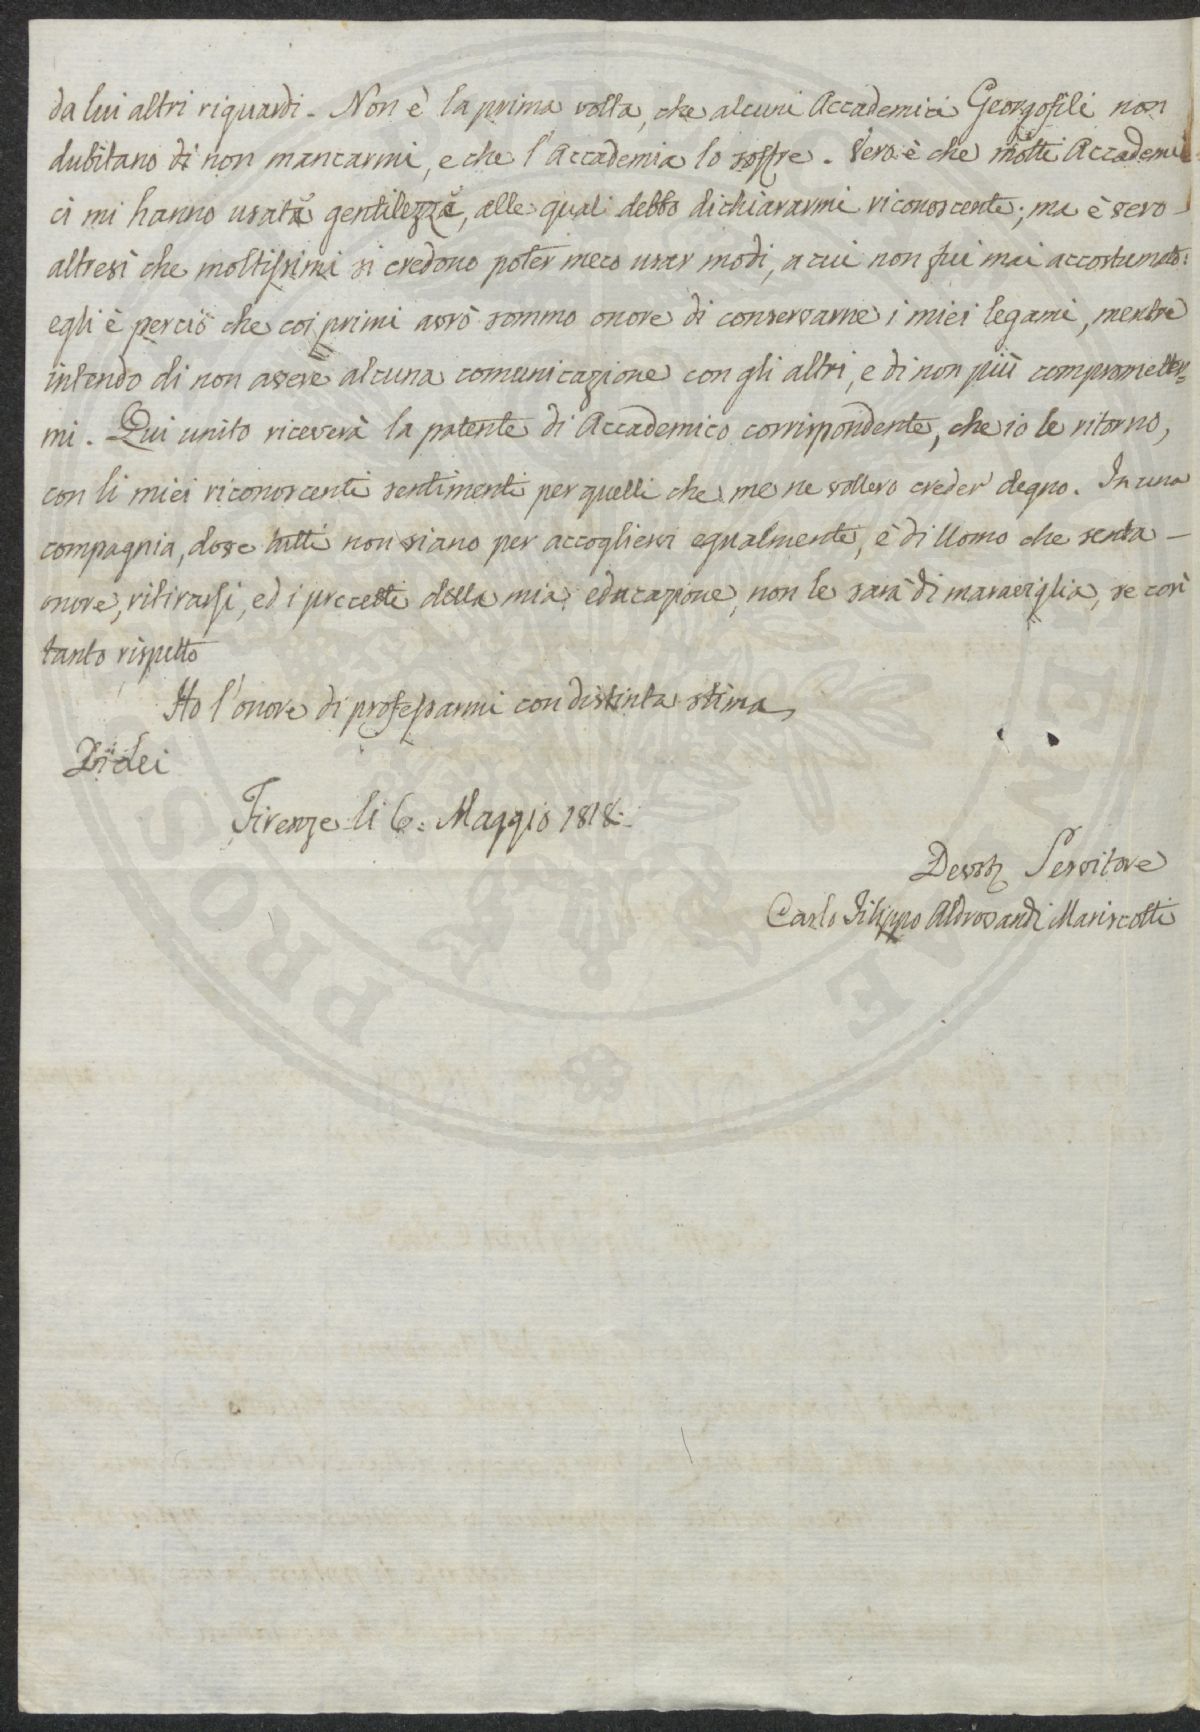 da lui altri riguardi. Non è la prima volta, che alcuni Accademici Georgofili non
dubitano di non mancarmi, e che l'Accademia lo soffre. Vero è che molti Accademi-
ci mi hanno usata gentilezza, alle quali debbo dichiararmi riconoscente; ma è vero
altresì che moltissimi si credono poter meco usar modi, a cui non fui mai accostumato:
egli è perciò che coi primi avrò sommo onore di conservarne i miei legami, mentre
intendo di non avere alcuna comunicazione con gli altri, e di non più compromетter-
mi. Qui unito riceverà la patente di Accademico corrispondente, che io le ritorno,
con li miei riconoscenti sentimenti per quelli che me ne vollero creder degno. In una
compagnia, dove tutti non siano per accogliersi egualmente, è di Uomo che senta
onore, ritirarsi, ed i precetti della mia educazione, non le sarà di maraviglia, se così
tanto rispetto
Ho l'onore di professarmi con distinta stima
Di lei
Firenze li 6. Maggio 1818.
Servitore
Carlo Filippo Aldrovandi Mariscotti
PROSPERITATI